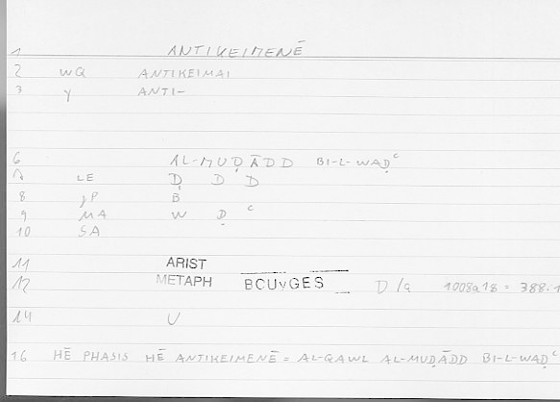 1 ANTIKEIMENĒ
2 WQ ANTIKEIMAI
3 γ ANTI-
6 AL-MUḌĀDD BI-L-WAḌᶜ
LE Ḍ D D
8 γP B
9 MA W Ḍ ᶜ
10 SA
11 ARIST
12 METAPH BOUYGES D/a 1008a18 = 388.1
14 U
16 HĒ PHASIS HĒ ANTIKEIMENĒ = AL-QAWL AL-MUḌĀDD BI-L-WAḌᶜ